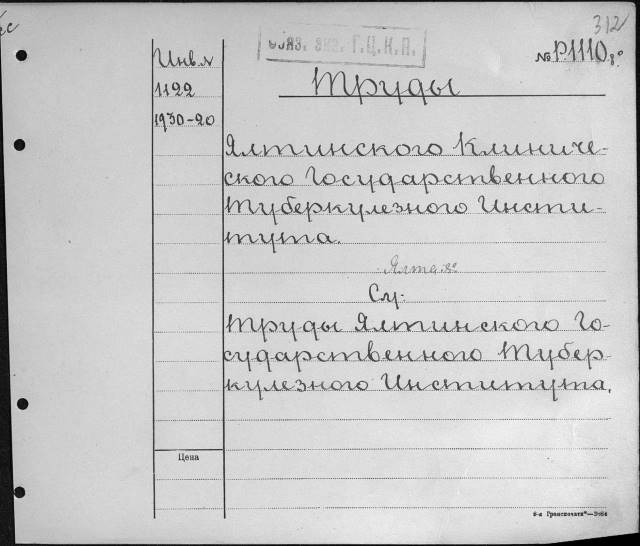 312
ОБЯЗ. ЭКЗ. Г.Ц.К.П.
№ Р.1110.8º
Инв. №
1122
1930-20
Труды
Ялтинского Клиниче-
ского Государственного
Туберкулезного Инсти-
тута.
Ялта. 8º
См:
Труды Ялтинского Го-
сударственного Тубер-
кулезного Института.
Цена